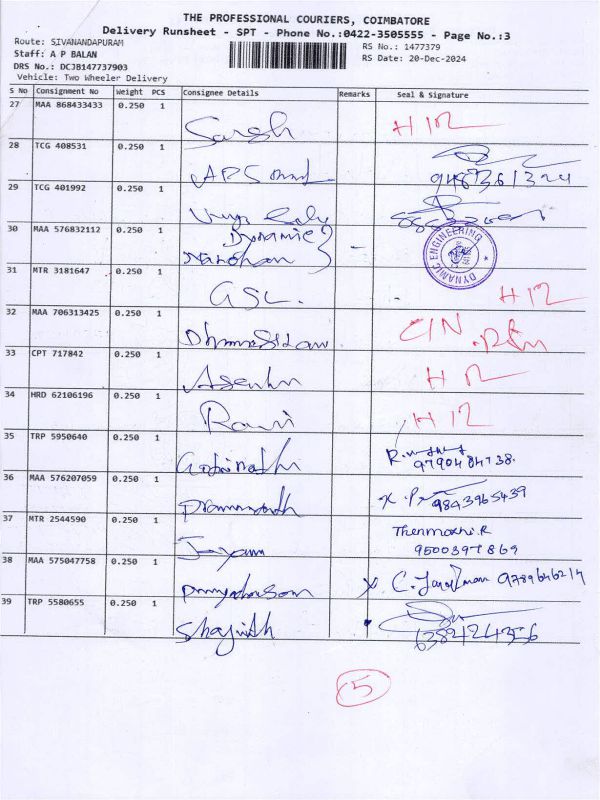 THE PROFESSIONAL COURIERS, COIMBATORE
Delivery Runsheet - SPT - Phone No.:0422-3505555 - Page No.:3
Route: SIVANANDAPURAM
RS No.: 1477379
Staff: A P BALAN
RS Date: 20-Dec-2024
DRS No.: DCJB147737903
Vehicle: Two Wheeler Delivery
S No Consignment No Weight PCS Consignee Details Remarks Seal & Signature
27 MAA 868433433 0.250 1
Sargh H12
28 TCG 408531 0.250 1
29 TCG 401992 0.250 1
30 MAA 576832112 0.250 1 Dynamic
Manohar
DYNAMIC ENGINEERING
31 MTR 3181647 0.250 1
GSL. H12
32 MAA 706313425 0.250 1
33 CPT 717842 0.250 1
H12
34 HRD 62106196 0.250 1
Ravi H12
35 TRP 5950640 0.250 1
Gopinathi 9790484738.
36 MAA 576207059 0.250 1
x 9843965439
37 MTR 2544590 0.250 1
Jayam Thenmozhi.R
9500397869
38 MAA 575047758 0.250 1
x C. 9789646214
39 TRP 5580655 0.250 1
Shajith 6384224356
5